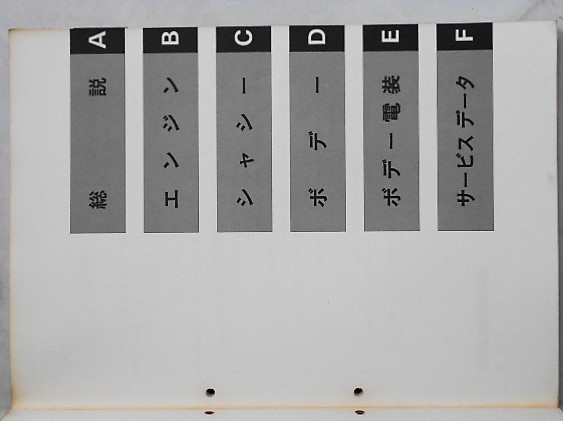 総説 A
エンジン B
シャシー C
ボデー D
ボデー電装 E
サービスデータ F